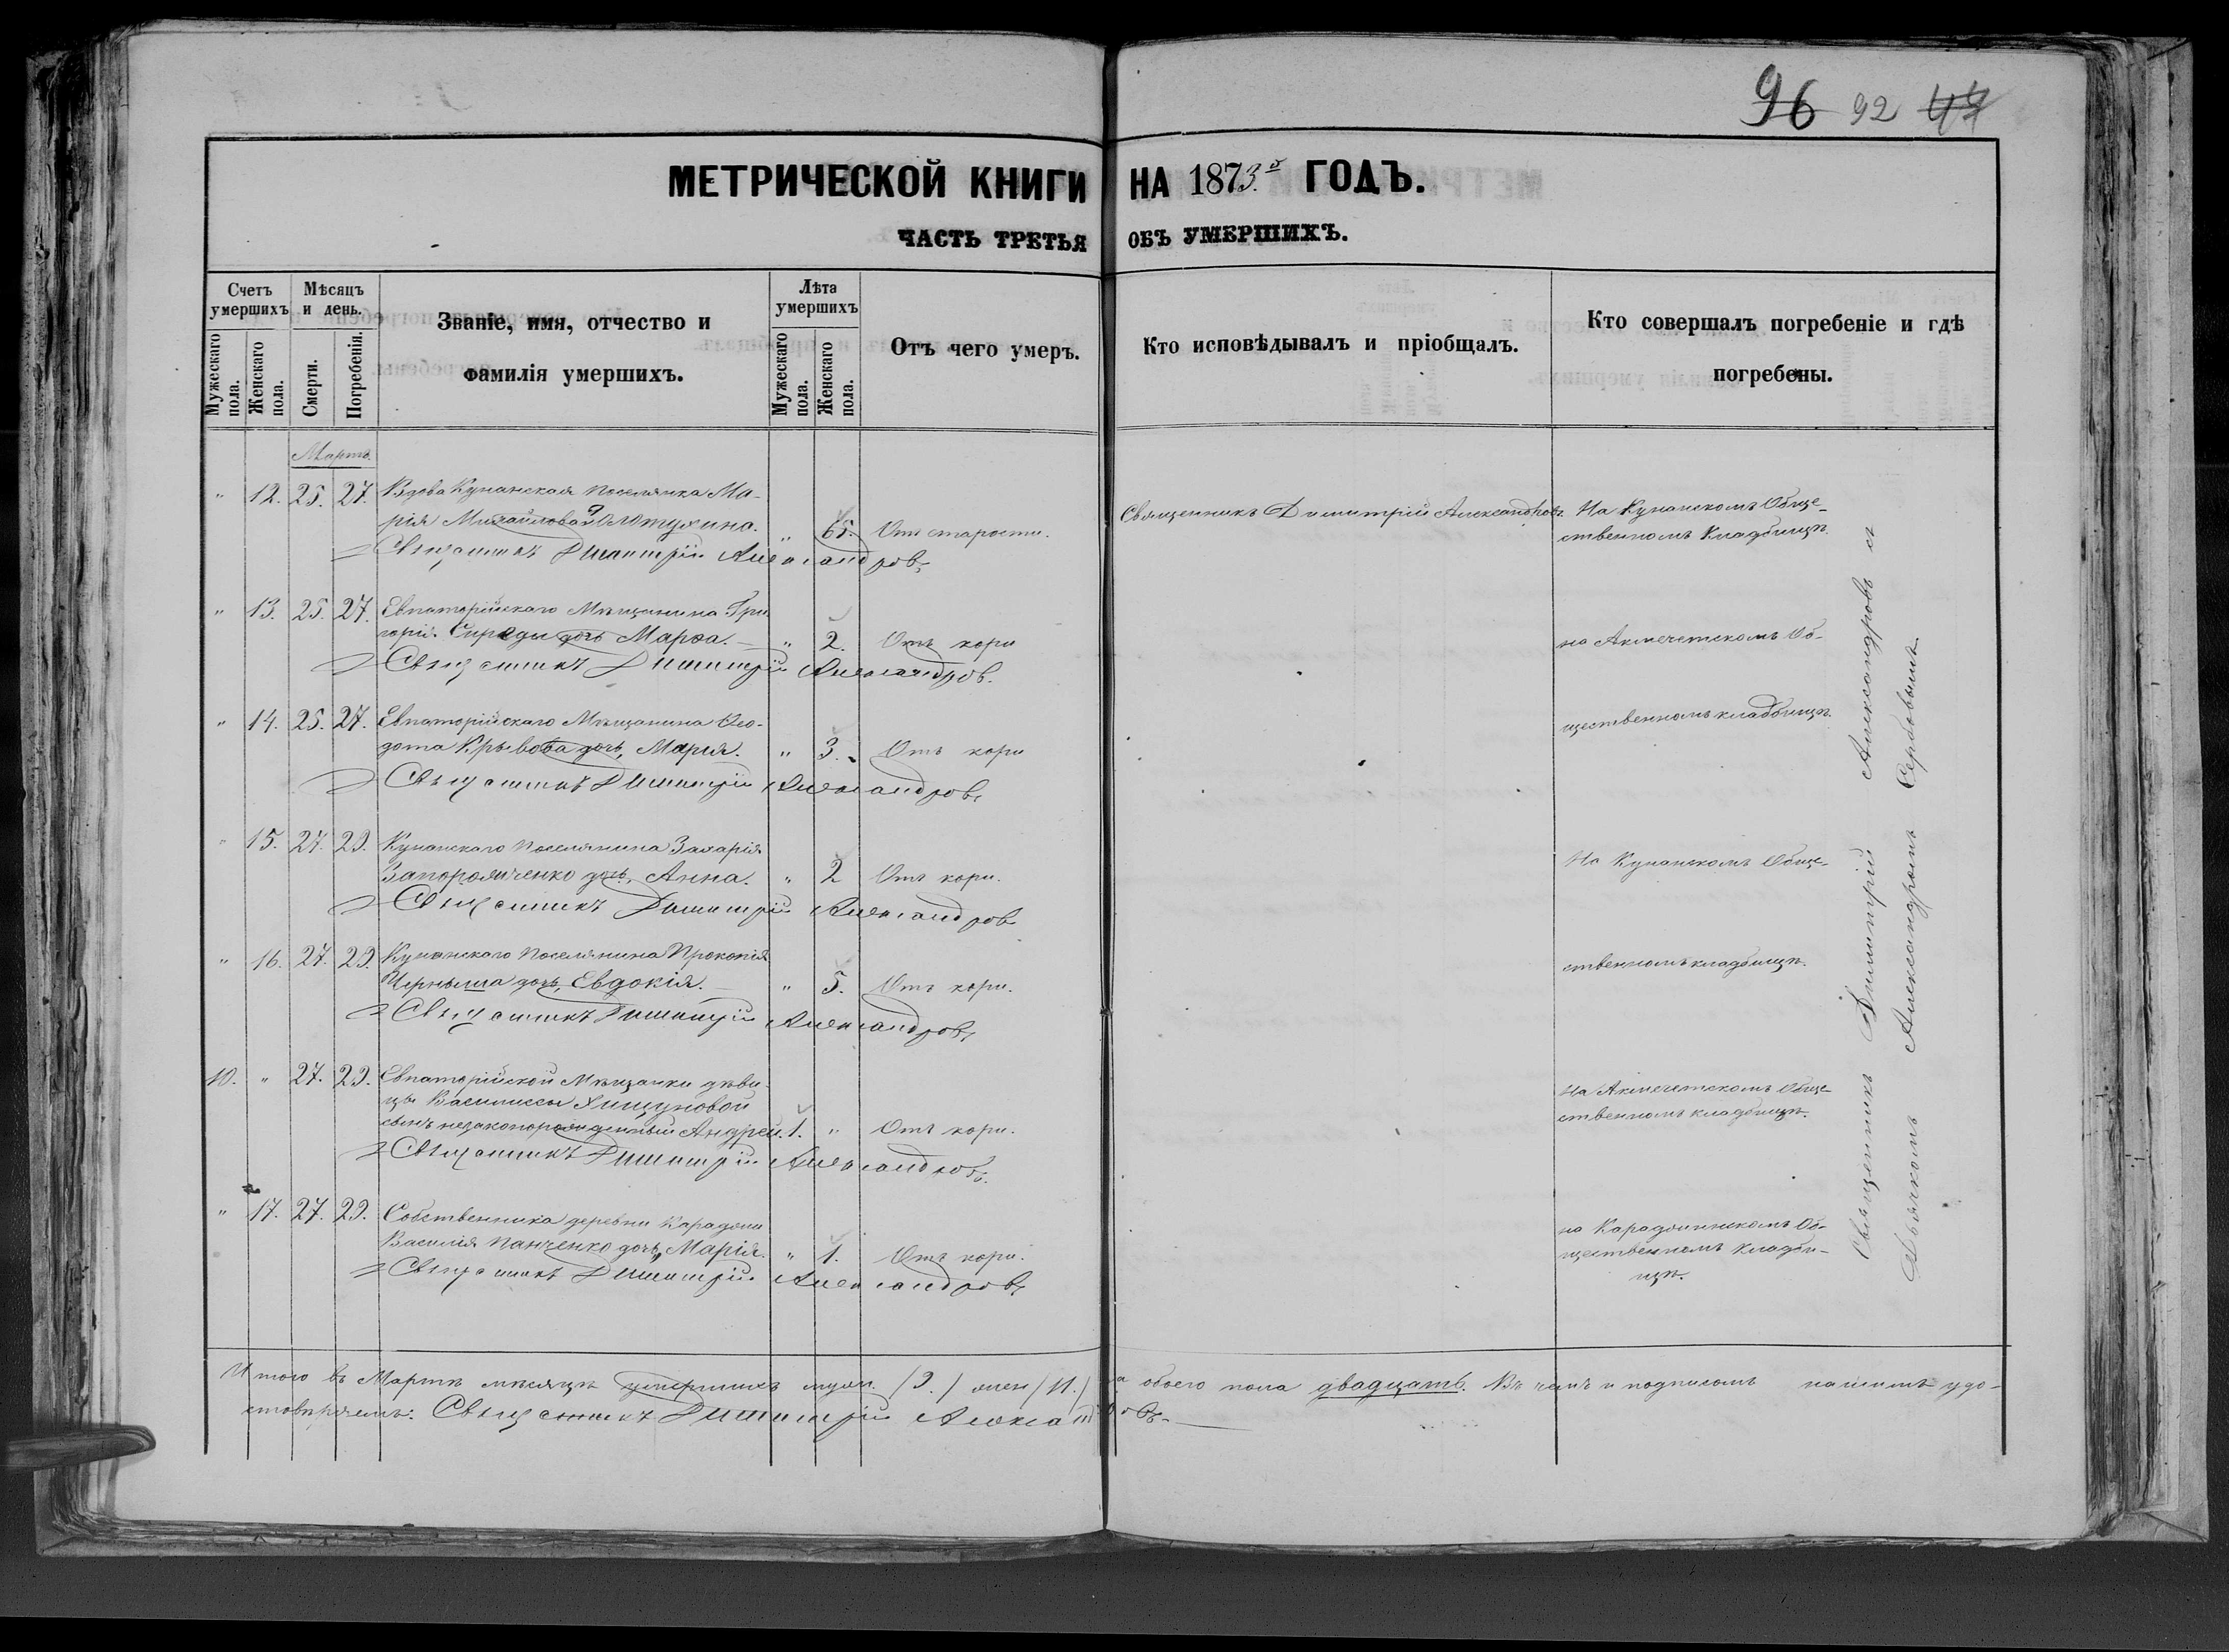 96 92 47
МЕТРИЧЕСКОЙ КНИГИ НА 1873й ГОДЪ.
ЧАСТЬ ТРЕТЬЯ ОБЪ УМЕРШИХЪ.
Счетъ умершихъ
Мужескаго пола.
Женскаго пола.
Мѣсяцъ и день.
Смерти.
Погребенія.
Званіе, имя, отчество и
фамилія умершихъ.
Лѣта умершихъ
Мужескаго пола.
Женскаго пола.
Отъ чего умеръ.
Кто исповѣдывалъ и пріобщалъ.
Кто совершалъ погребеніе и гдѣ
погребены.
Мартъ.
" 12. 25. 27. Вдова Кунанская поселянка Ма-
рія Михайлова " 65. Отъ старости. Священникъ Димитрій Александровъ. На Кунанскомъ Обще-
ственномъ Кладбищѣ.
Священникъ Димитрій Александровъ
" 13. 25. 27. Евпаторійскаго Мѣщанина Гри
горія дочь Марѳа. " 2. Отъ кори на Акмечетскомъ Об-
Священникъ Димитрій Александров.
" 14. 25. 27. Евпаторійскаго Мѣщанина Ѳео-
дота Крывова дочь, Марія. " 3. Отъ кори щественномъ кладбищѣ.
Священникъ Димитрій Александровъ
" 15. 27. 29. Кунанскаго поселянина Захарія
Запорожченко дочь, Анна. " 2 Отъ кори. На Кунанскомъ Обще-
Священникъ Димитрій Александров
" 16. 27. 29. Кунанскаго Поселянина Прокопія
Черныша дочь, Евдокія. " 5. Отъ кори. ственномъ кладбищѣ.
Священникъ Димитрій Александровъ
10. " 27. 29. Евпаторійской Мѣщанки дѣви
цы Василиссы
сынъ незаконорожденный Андрей. 1. " Отъ кори. На Акмечетскомъ Обще-
ственномъ кладбищѣ.
Священникъ Димитрій Александровъ.
" 17. 27. 29. Собственника деревни Караджи
Василія Панченко дочь, Марія. " 1. Отъ кори. на Караджинскомъ Об-
щественномъ Кладби-
щѣ.
Священникъ Димитрій Александровъ
Священникъ Димитрій Александровъ съ
Дьячкомъ Александромъ Сербовымъ
Итого въ Мартѣ мѣсяцѣ умершихъ муж. /9./ жен /11./ а обоего пола двадцать. Въ чемъ и подписомъ нашимъ удо-
стовѣряемъ: Священникъ Димитрій Александровъ